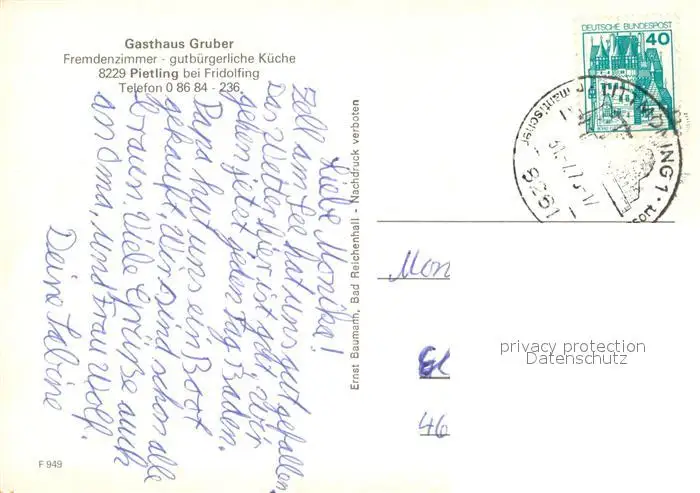 Gasthaus Gruber
Fremdenzimmer - gutbürgerliche Küche
8229 Pietling bei Fridolfing
Telefon 0 86 84 - 236
Liebe Monika!
Zell am See hat uns gut gefallen.
Das Wetter hier ist gut, wir
gehen jetzt jeden Tag Baden.
Papa hat uns ein Boot
gekauft. Wir sind schon alle
braun. Viele Grüße auch
an Oma, und Frau Wolf.
Deine Sabine
F 949
Ernst Baumann, Bad Reichenhall - Nachdruck verboten
DEUTSCHE BUNDESPOST
40
TITTMONING 1
8261
Mon
El
46
privacy protection
Datenschutz